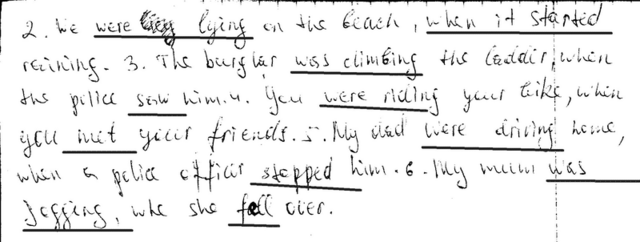 2. We were lying on the beach, when it started
reining. 3. The burglar was climbing the laddir, when
the police saw him. 4. You were riding your bike, when
you met your friends. 5. My dad were driving home,
when a police officir stopped him. 6. My mum was
jogging, whe she fell over.